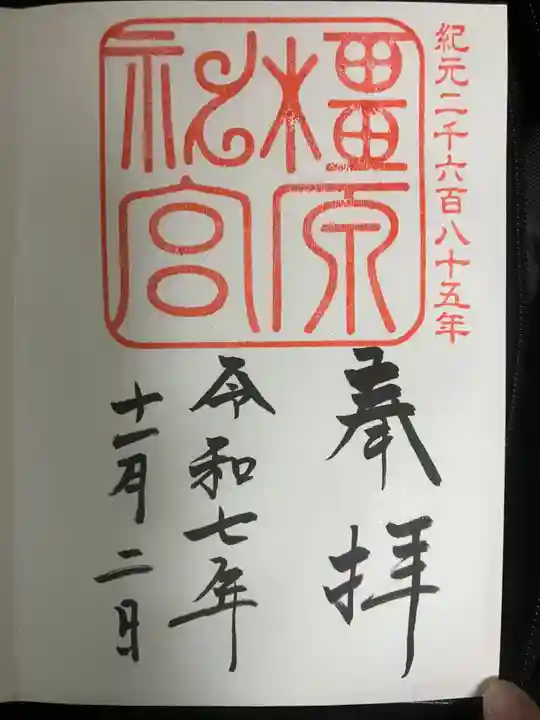 紀元二千六百八十五年
橿原
神宮
奉拝
令和七年
十一月二日